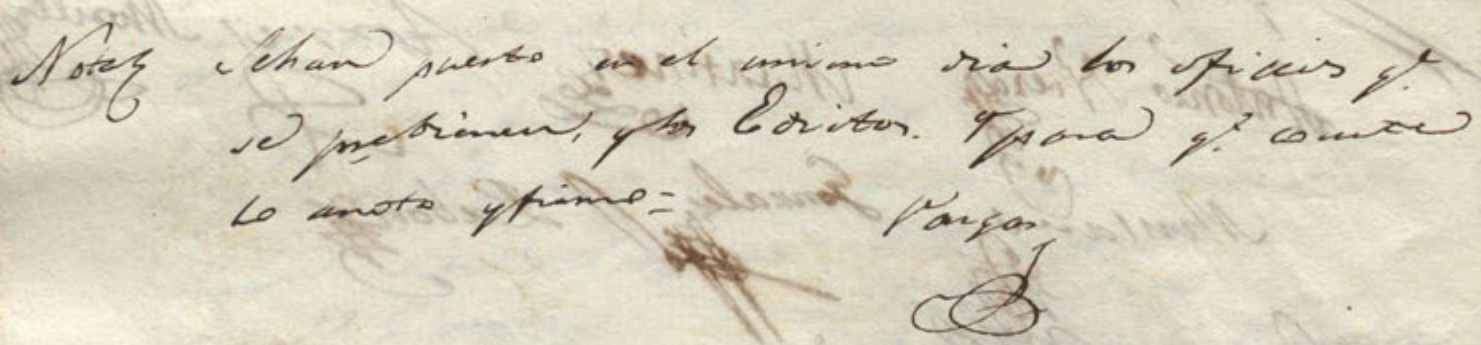 Nota Sehan puesto en el mismo dia los oficios q.e
se prebienen, y los Edictos. Y para q.e conste
lo anoto y firmo =
Vargas